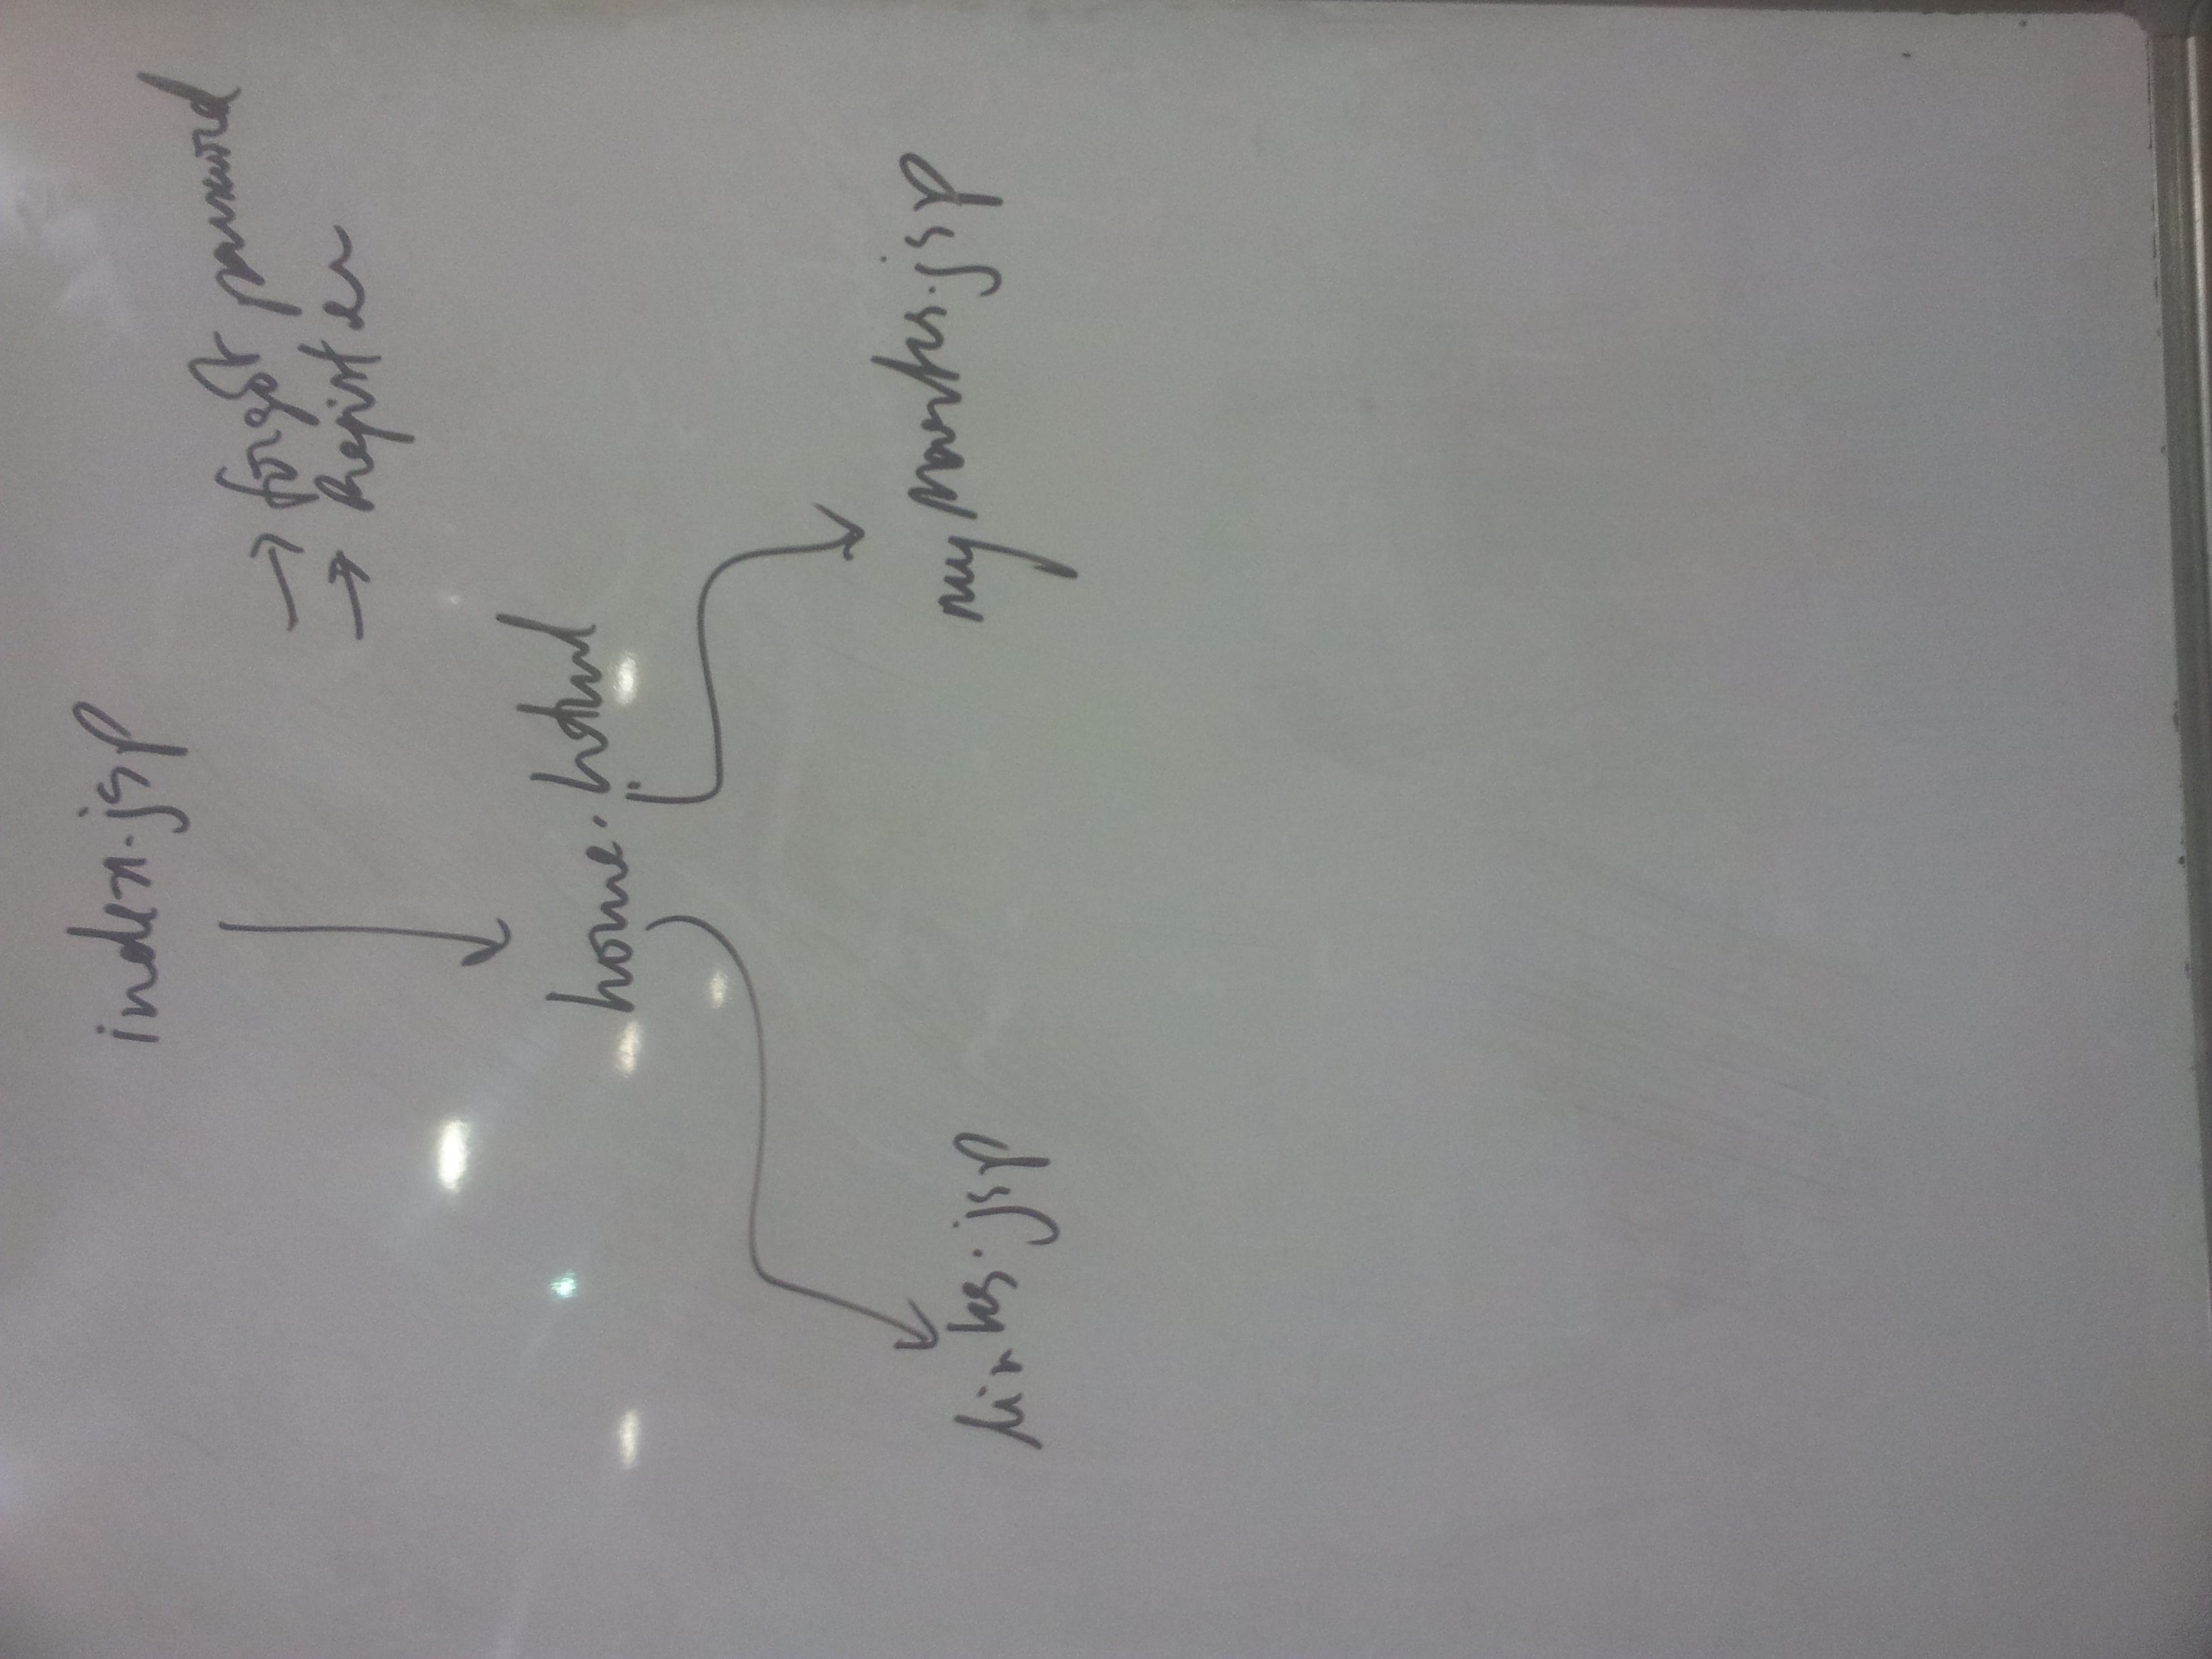 index.jsp
→ forgot password
→ Register
home.html
links.jsp
myMarks.jsp